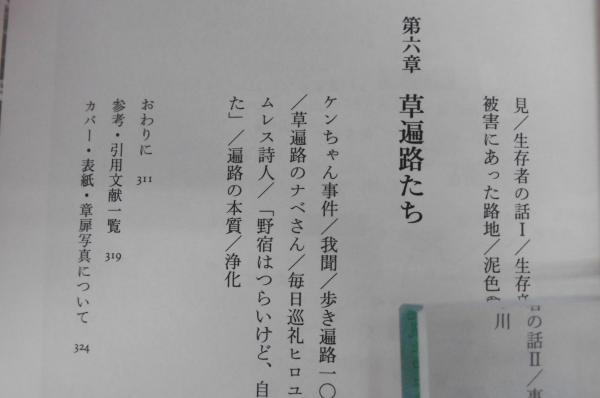 見/生存者の話Ⅰ/生存者の話Ⅱ/
被害にあった路地/泥色の川
第六章 草遍路たち
ケンちゃん事件/我聞/歩き遍路一〇
/草遍路のナベさん/毎日巡礼ヒロユ
ムレス詩人/「野宿はつらいけど、自
た」/遍路の本質/浄化
おわりに 311
参考・引用文献一覧 319
カバー・表紙・章扉写真について 324